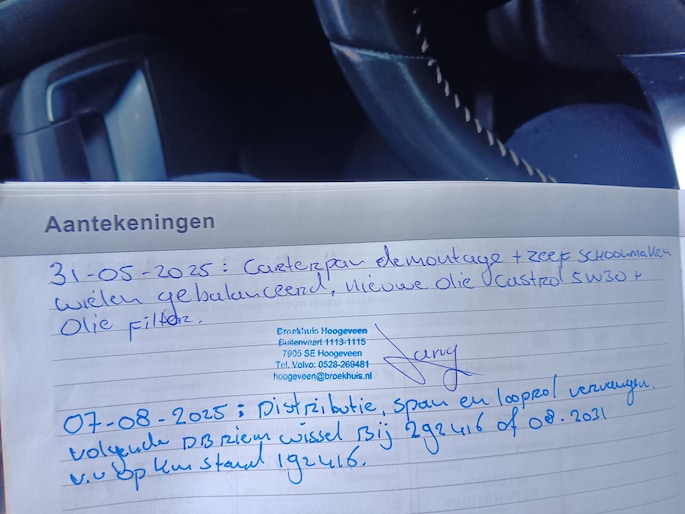 Aantekeningen
31-05-2025: Carterpan demontage + zeef schoonmaken
wielen gebalanceerd, nieuwe olie Castrol 5W30 +
Olie Filter.
Broekhuis Hoogeveen
Buitenvaart 1113-1115
7905 SE Hoogeveen
Tel. Volvo: 0528-269481
hoogeveen@broekhuis.nl
07-08-2025: Distributie, span en looprol vervangen.
volgende DB Riem wissel Bij 292416 of 08-2031
v.v op km stand 192416.